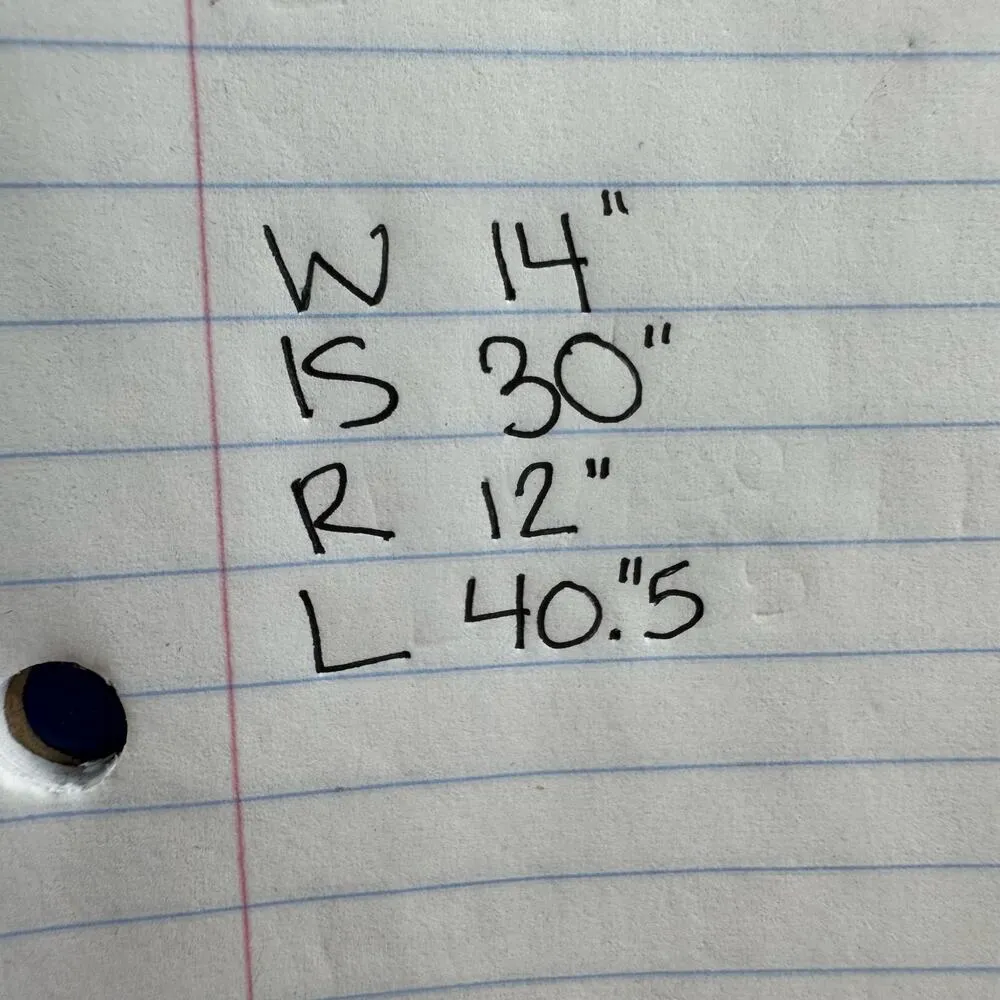 W 14"
IS 30"
R 12"
L 40."5